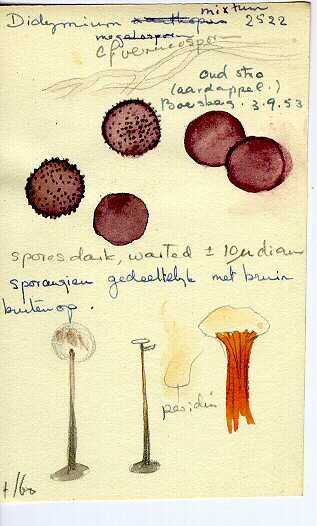 mixtum
Didymium xanthopus 2522
megalosporum
Cf verrucospor
oud stro
(aardappel.)
3.9.53
spores dark, warted ± 10 µ diam
sporangien gedeeltelijk met bruin
buiten op.
peridium